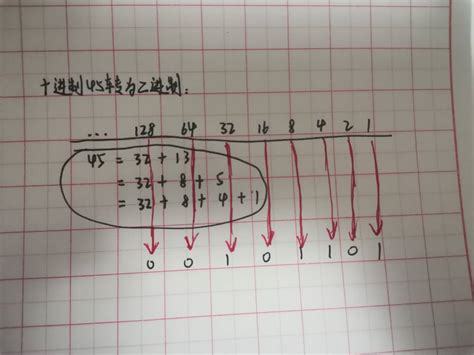 十进制45转为二进制:
... 128 64 32 16 8 4 2 1
45 = 32 + 13
= 32 + 8 + 5
= 32 + 8 + 4 + 1
0 0 1 0 1 1 0 1